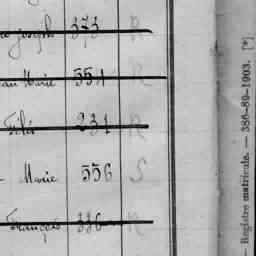 joseph 373 R
Marie 551 R
Félix 231 R
Marie 556 S
François 336 R
— Registre matricule. — 386-89-1903. [*]